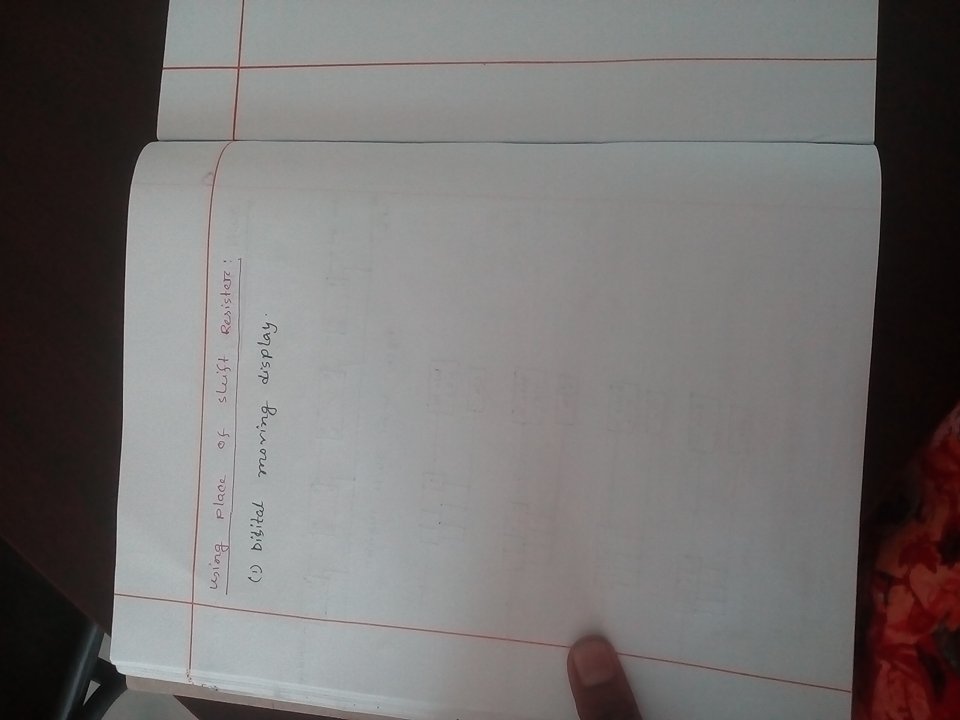 using place of shift Resister:
(1) Digital moving display.